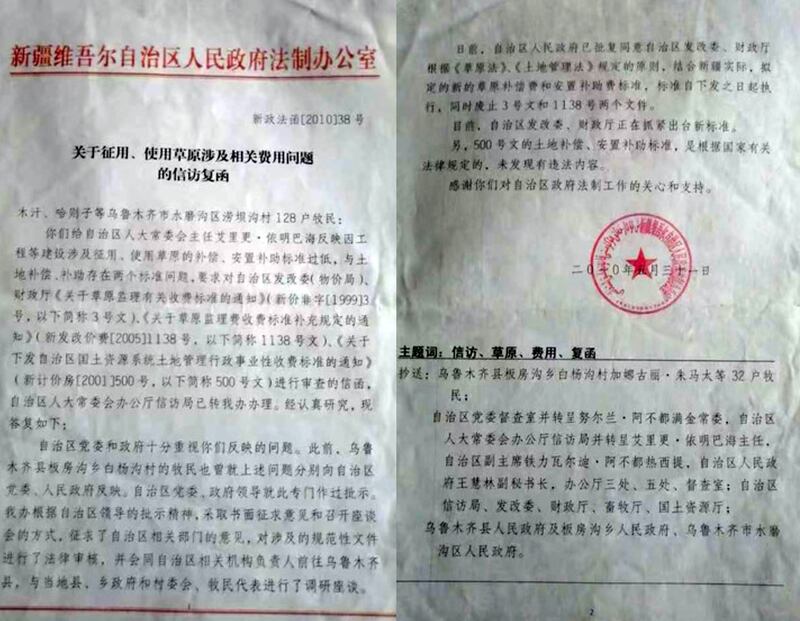 新疆维吾尔自治区人民政府法制办公室
新政法函[2010]38号
关于征用、使用草原涉及相关费用问题
的信访复函
木汗、哈则子等乌鲁木齐市水磨沟区涝坝沟村128户牧民：
你们给自治区人大常委会主任艾里更·依明巴海反映因工
程等建设涉及征用、使用草原的补偿、安置补助标准过低，与土
地补偿、补助存在两个标准问题，要求对自治区发改委(物价局)、
财政厅《关于草原监理有关收费标准的通知》(新价非字[1999]3
号，以下简称3号文)、《关于草原监理费收费标准补充规定的通
知》(新发改价费[2005]1138号，以下简称1138号文)、《关于
下发自治区国土资源系统土地管理行政事业性收费标准的通知》
(新计价房[2001]500号，以下简称500号文)进行审查的信函，
自治区人大常委会办公厅信访局已转我办办理。经认真研究，现
答复如下；
自治区党委和政府十分重视你们反映的问题。此前，乌鲁
木齐县板房沟乡白杨沟村的牧民也曾就上述问题分别向自治区
党委、人民政府反映。自治区党委、政府领导就此专门作过批示。
我办根据自治区领导的批示精神，采取书面征求意见和召开座谈
会的方式，征求了自治区相关部门的意见，对涉及的规范性文件
进行了法律审核，并会同自治区相关机构负责人前往乌鲁木齐
县，与当地县、乡政府和村委会、牧民代表进行了调研座谈。
1
日前，自治区人民政府已批复同意自治区发改委、财政厅
根据《草原法》、《土地管理法》规定的原则，结合新疆实际，拟
定的新的草原补偿费和安置补助费标准，标准自下发之日起执
行，同时废止3号文和1138号两个文件。
目前，自治区发改委、财政厅正在抓紧出台新标准。
另，500号文的土地补偿、安置补助标准，是根据国家有关
法律规定的，未发现有违法内容。
感谢你们对自治区政府法制工作的关心和支持。
二〇一〇年五月三十一日
主题词：信访、草原、费用、复函
抄送：乌鲁木齐县板房沟乡白杨沟村加娜古丽·朱马太等32户牧
民；
自治区党委督查室并转呈努尔兰·阿不都满金常委，自治区
人大常委会办公厅信访局并转呈艾里更·依明巴海主任，
自治区副主席铁力瓦尔迪·阿不都热西提，自治区人民政
府王慧林副秘书长，办公厅三处、五处、督查室；自治区
信访局、发改委、财政厅、畜牧厅、国土资源厅；
乌鲁木齐县人民政府及板房沟乡人民政府、乌鲁木齐市水磨
沟区人民政府。
2